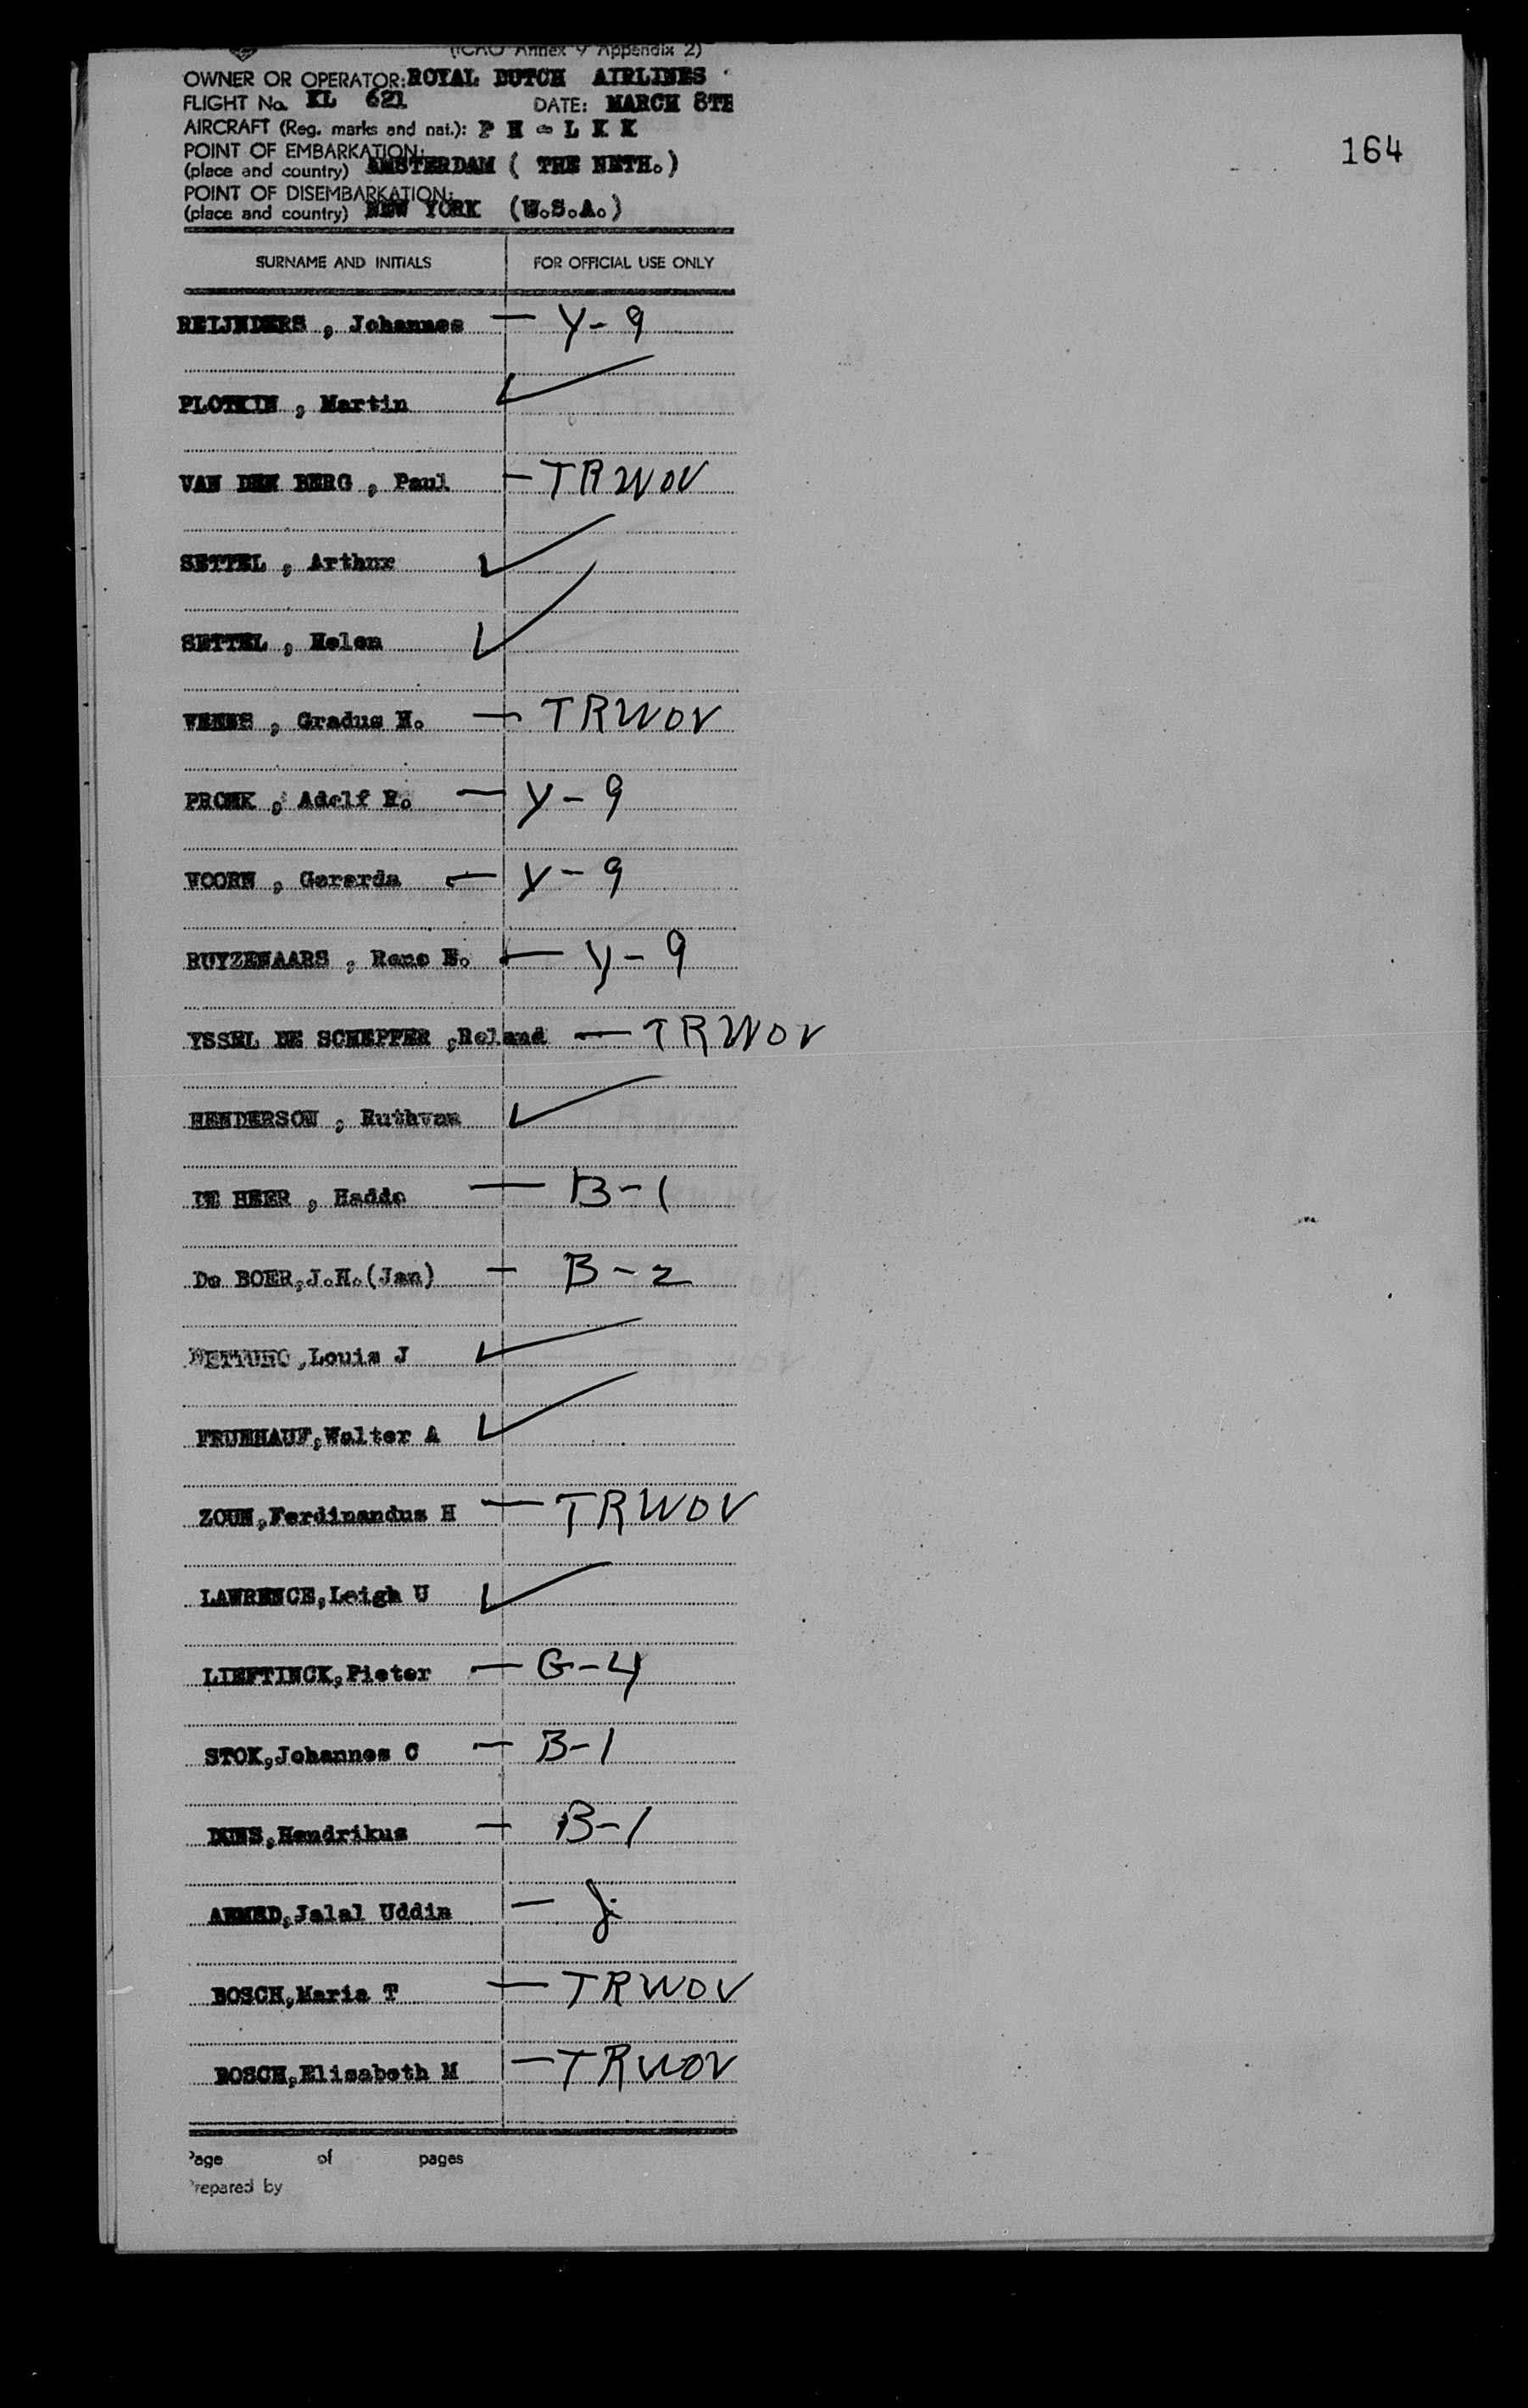 (ICAO Annex 9 Appendix 2)
OWNER OR OPERATOR: ROYAL DUTCH AIRLINES
FLIGHT No. KL 621 DATE: MARCH 8TH
AIRCRAFT (Reg. marks and nat.): P H - L K K
POINT OF EMBARKATION:
(place and country) AMSTERDAM ( THE NETH. )
POINT OF DISEMBARKATION:
(place and country) NEW YORK (U.S.A.)
164
SURNAME AND INITIALS FOR OFFICIAL USE ONLY
REIJNDERS , Johannes — Y-9
PLOTKIN , Martin ✓
VAN DEN BERG , Paul — TRWOV
SETTEL , Arthur ✓
SETTEL , Helen ✓
Gradus H. — TRWOV
PRONK , Adolf H. — Y-9
VOORN , Gererda — Y-9
RUYZENAARS , Rene — Y-9
YSSEL DE SCHEPPER ,Roland — TRWOV
HENDERSON , Ruthven ✓
DE HEER , Haddo — B-1
De BOER,J.H.(Jan) — B-2
Louis J ✓
FRUEHAUF,Walter A ✓
ZOUN,Ferdinandus H — TRWOV
LAWRENCE,Leigh U ✓
LIEFTINCK,Pieter — G-4
STOK,Johannes C — B-1
Hendrikus — B-1
AHMED,Jalal Uddin —
BOSCH,Maria T — TRWOV
BOSCH,Elisabeth M — TRWOV
Page of pages
Prepared by